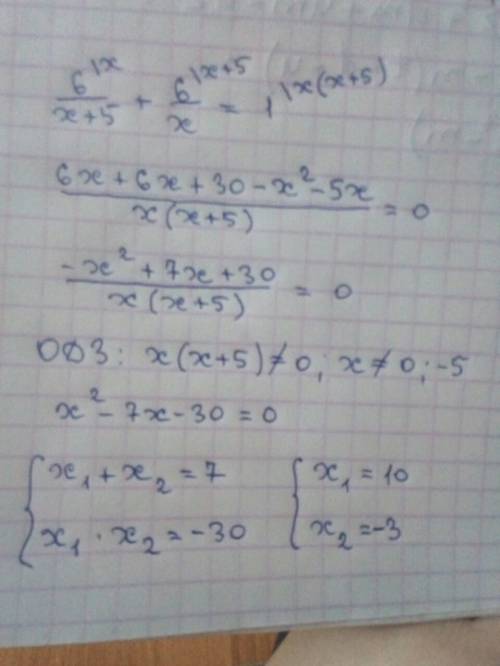 6^|x/(x+5) + 6^|x+5/x = 1^|x(x+5)
(6x+6x+30-x²-5x)/(x(x+5)) = 0
(-x²+7x+30)/(x(x+5)) = 0
ОДЗ: x(x+5)≠0; x≠0; -5
x²-7x-30=0
{x₁+x₂=7 {x₁=10
x₁·x₂=-30 x₂=-3